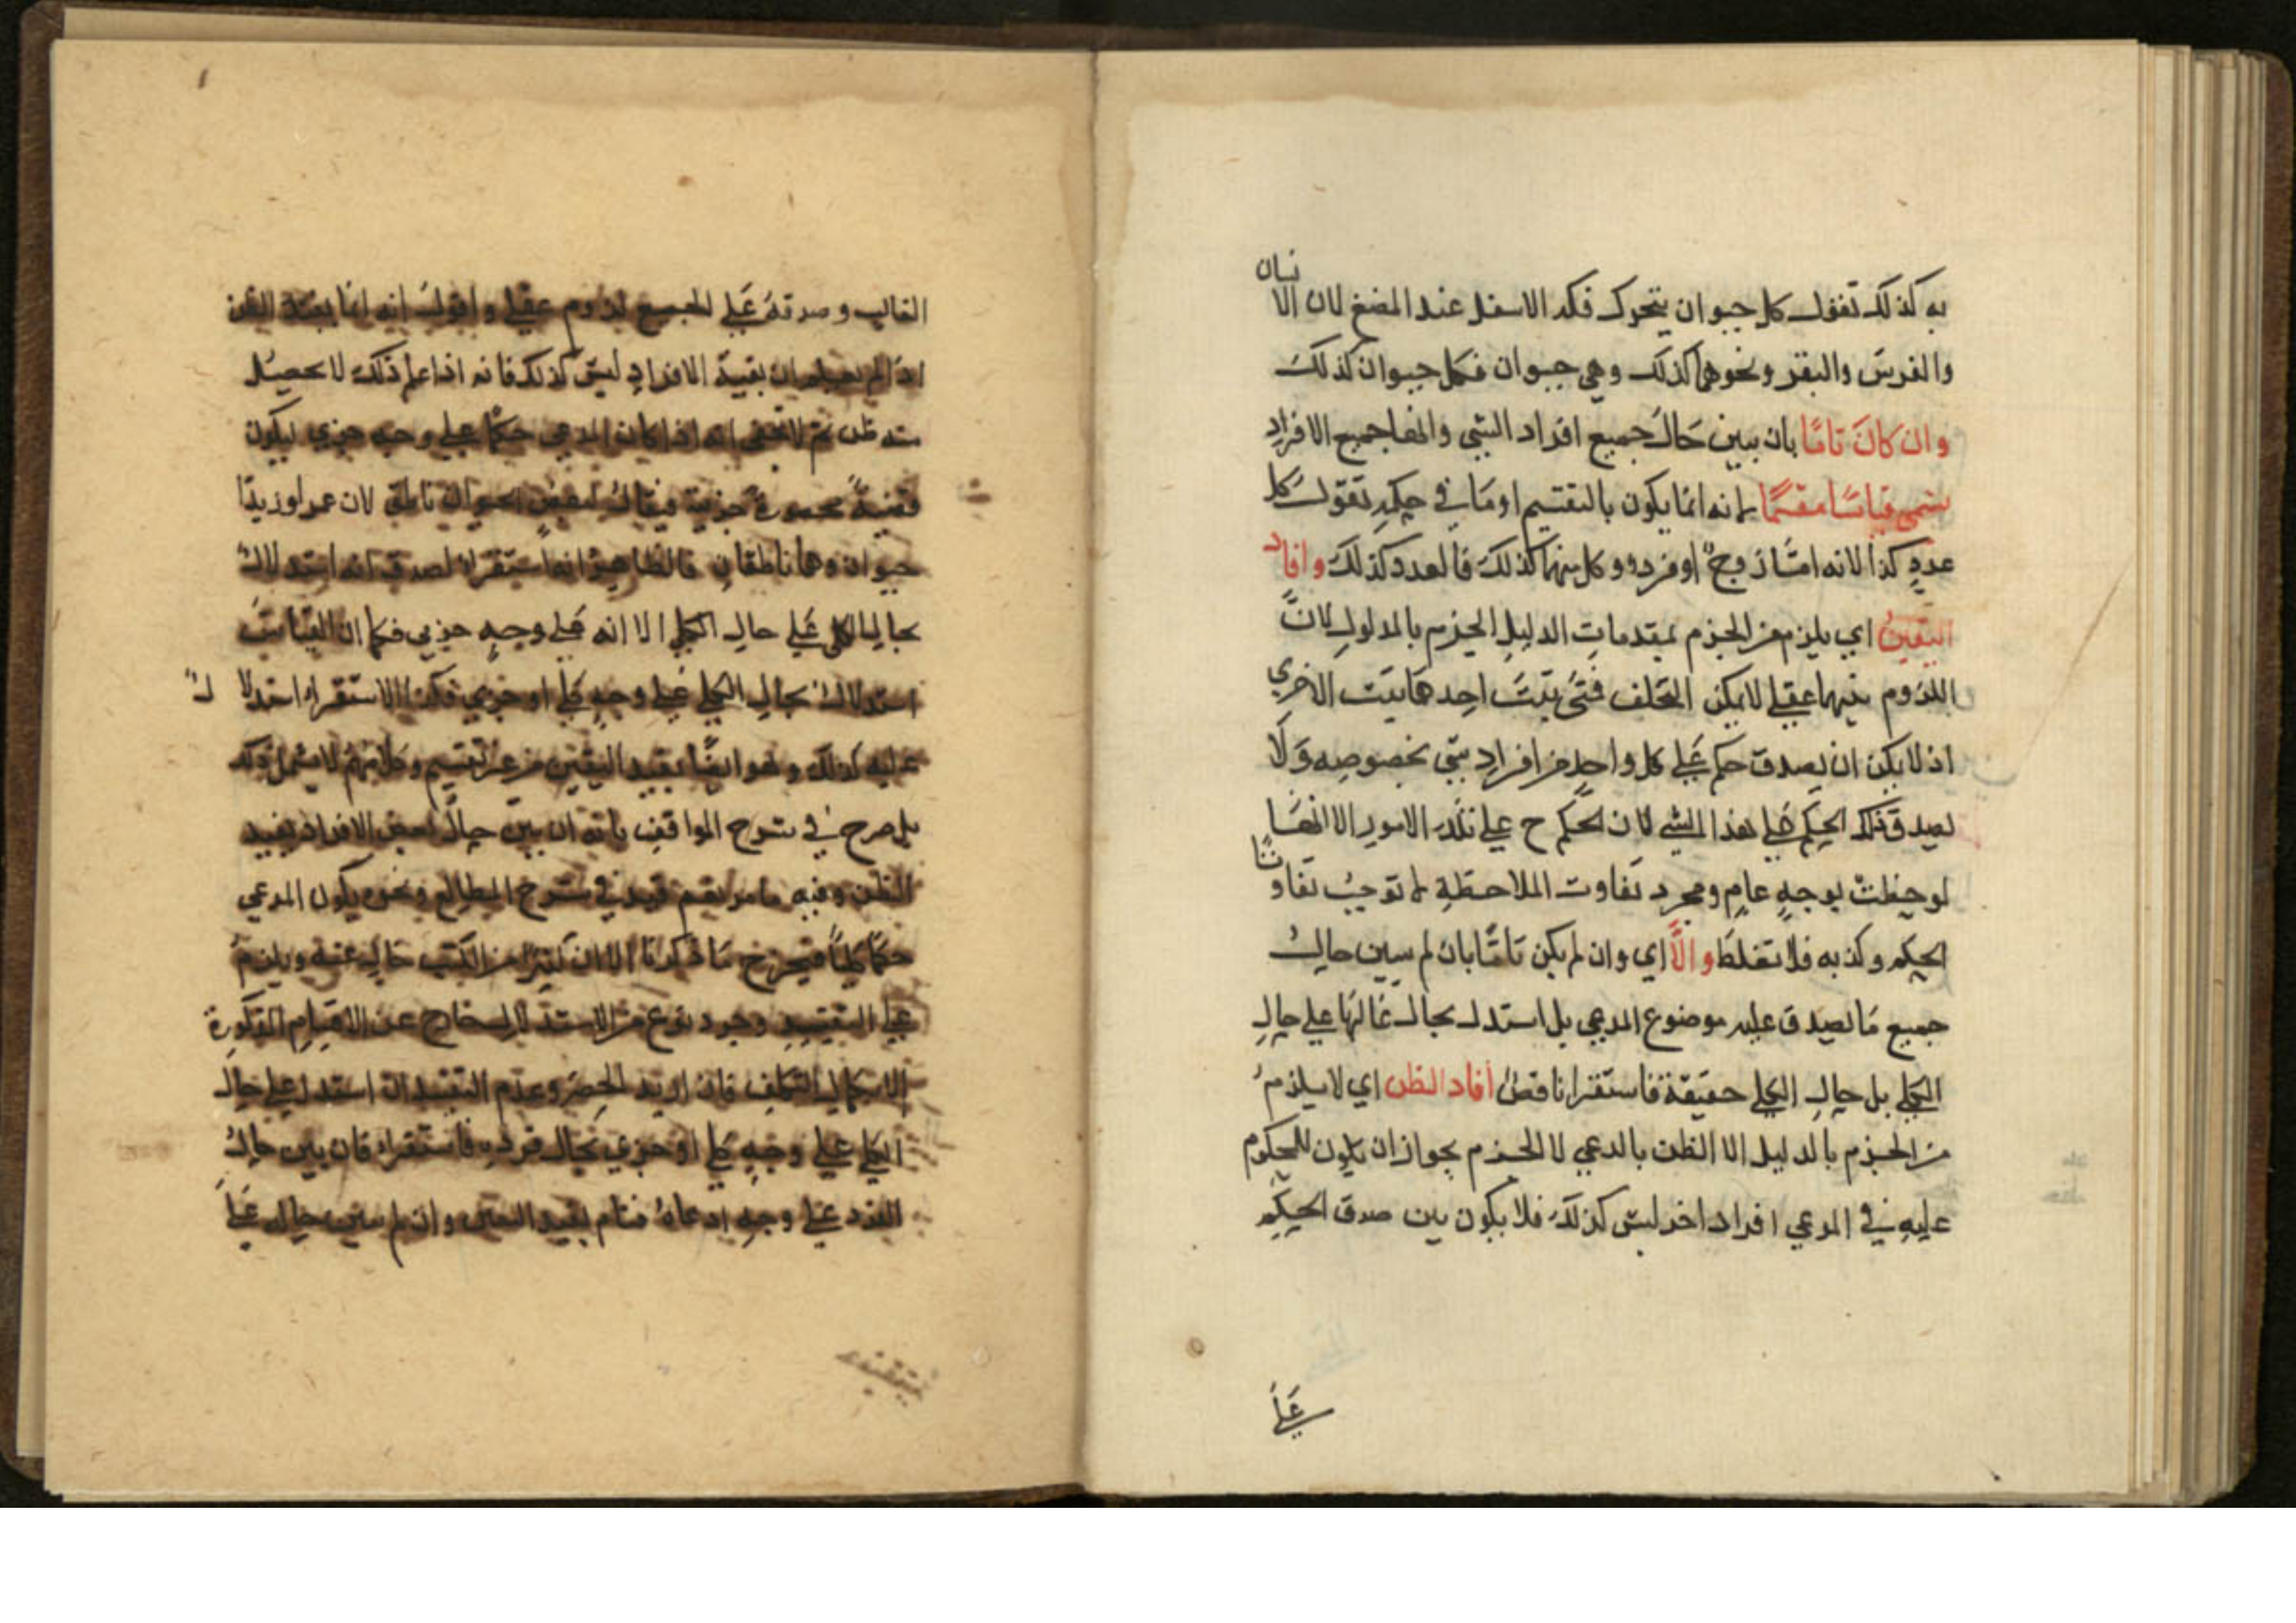 به كذلك تقول كل حيوان يتحرك فكه الاسفل عند المضغ لان الانسان
والفرس والبقر ونحوها كذلك وهي حيوان فكل حيوان كذلك
وان كان تامًا بان يبين حال جميع افراد الشي وانها جميع الافراد
يسمى قياسًا مقسمًا لانه انما يكون بالتقسيم او ما في حكمه تقول كل
عدد كذا لانه امّا زوج او فرد وكل منهما كذلك فالعدد كذلك وافاد
اليقين اي يلزم من الجزم بمقدمات الدليل الجزم بالمدلول لانّ
اللزوم بينهما عقلي لا يمكن التخلف فمتى ثبت احدهما ثبت الاخري
اذ لا يمكن ان يصدق حكم على كل واحد من افراد شي بخصوصه ولا
يصدق ذلك الحكم على هذا الشي لان الحكم ح على تلك الامور الا انها
لوحظت بوجه عام ومجرد تفاوت الملاحظة لا توجب تفاوتًا
الحكم وكذبه فلا تغلط والّا اي وان لم يكن تامًا بان لم يبين حال
جميع ما يصدق عليه موضوع المدعي بل استدل بحال غالبها على حال
الكلي بل حال الكلي حقيقة فاستقرا ناقص أفاد الظن اي لا يلزم
من الجزم بالدليل الا الظن بالدعي لا الجزم بجواز ان يكون للمحكوم
عليه في المدعي افراد اخر ليس كذلك فلا يكون بين صدق الحكم
على
الغالب وصدقه على الجميع لزوم عقلي واقول انه انما يفيد الظن
اذا لم يعلم ان بقية الافراد ليس كذلك فانه اذا علم ذلك لا يحصل
منه ظن ثم لا يخفى انه اذا كان المدعي حكمًا على وجه جزي ليكون
قضية محصورة جزية فيقال بعض الحيوان ناطق لان عمرا وزيدًا
حيوان وهما ناطقان فالظاهر انه استقراء لصدق انه استدلال
بحال الكلي على حال الكلي الا انه على وجه جزيي فكما ان القياس
استدلال بحال الكلي على وجه كلي او جزي فكذا الاستقراء استدلال
عليه كذلك وهو ايضًا يفيد اليقين من غير تقسيم وكلامهم لا يشمل ذلك
بل صرح في شرح المواقف بانه ان بين حال بعض الافراد يفيد
الظن وفيه ما مر نعم قيد في شرح المطالع ونحوه يكون المدعي
حكمًا كليًا فيخرج ما ذكرنا الا ان كثيرا من الكتب خال عنه ويلزم
على التقييد وجود نوع من الاستدلال خارج عن الاقسام المذكورة
فان اريد الحصر وعدم التقييد ان استدل على حال
الكلي على وجه كلي او جزي بحال فرده فاستقراء فان بين حال
الفرد على وجه ادعاه فتام يفيد اليقين وان لم يبين حاله على